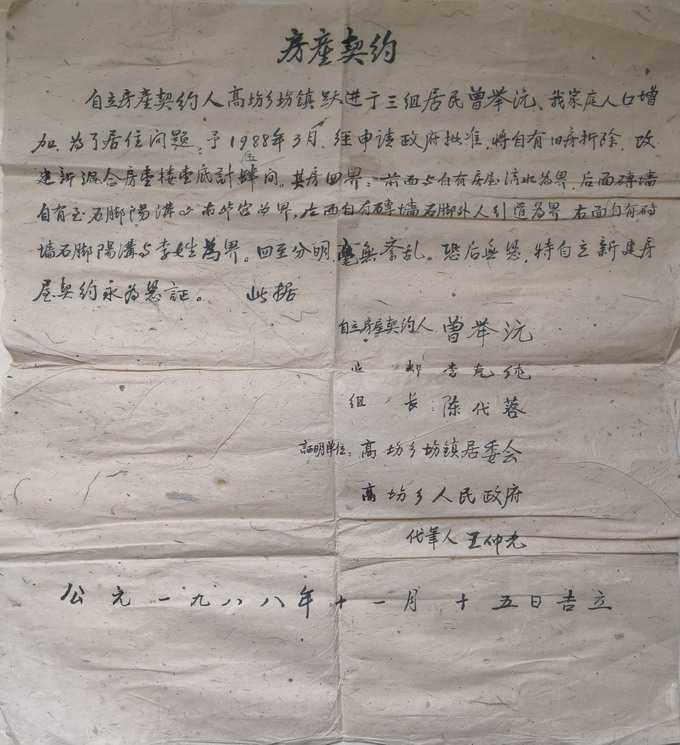 房产契约
自立房产契约人高坊乡坊镇跃进于三组居民曾举沅、我家庭人口增
加,为了居住问题,予1988年3月,经申请政府批准,将自有旧房拆除,改
建新综合房壹楼壹底計肆间。其房四界:前面与自有房屋滴水为界,后面砖墙
自有至石脚陽溝 为界,左面自有砖墙石脚外人引道为界,右面自有砖
墙石脚陽溝与李姓為界。四至分明,毫無紊乱。恐后無凭,特自立新建房
屋契约永为凭证。 此据
自立房产契约人 曾举沅
邻 李 纯
组 长:陈代蓉
証明单位:高坊乡坊镇居委会
高坊乡人民政府
代筆人 王仲光
公元一九八八年十一月十五日吉立